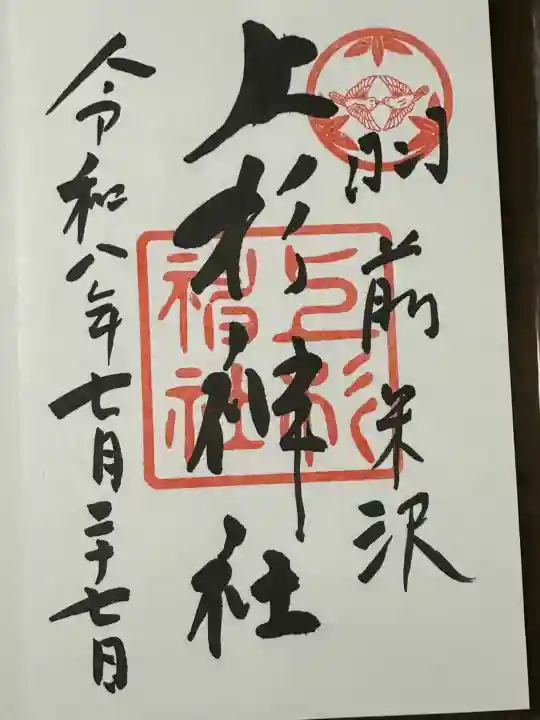 羽前米沢
上杉神社
上杉神社
令和八年七月二十七日